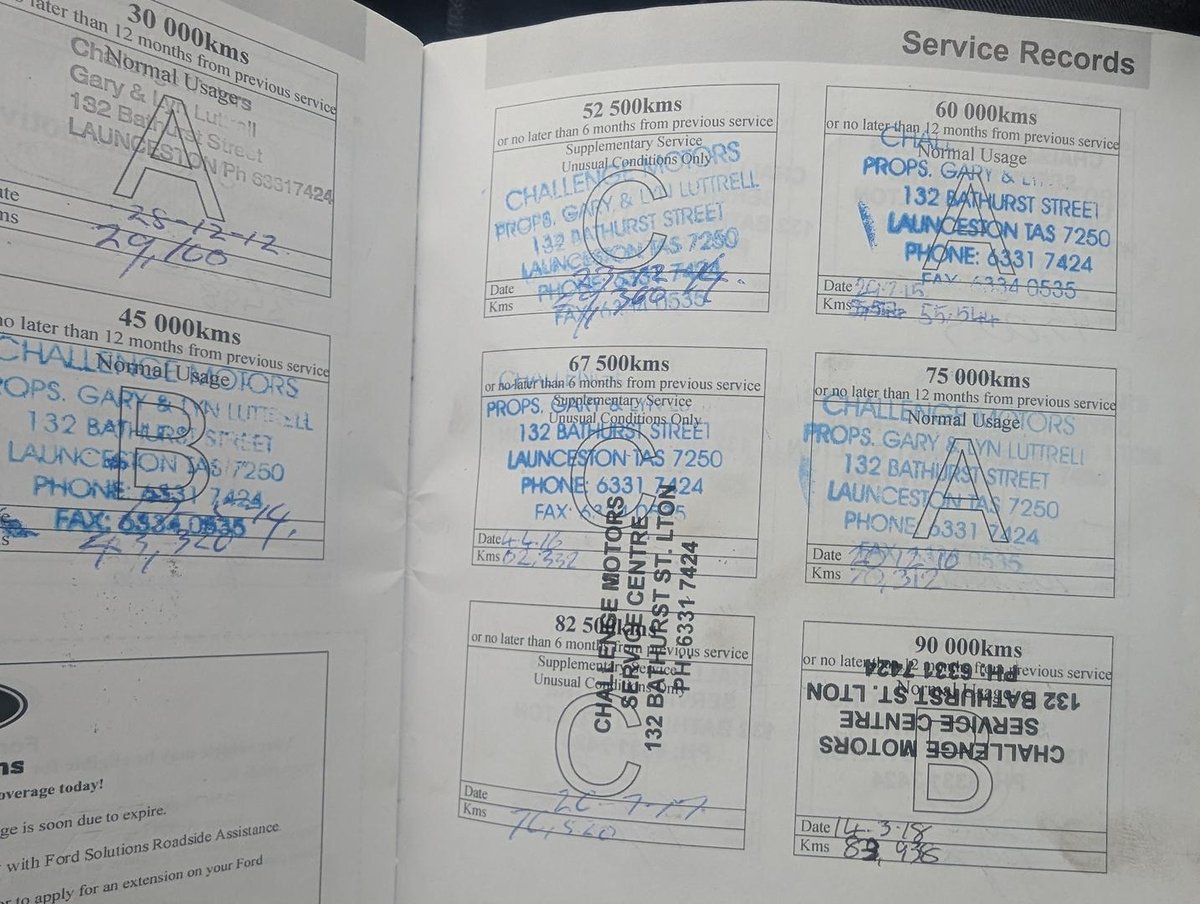 30 000kms
later than 12 months from previous service
Normal Usage
Gary & Lyn Luttrell
132 Bathurst Street
LAUNCESTON Ph 63317424
A
28-12-12
29,100
45 000kms
no later than 12 months from previous service
CHALLENGE MOTORS
Normal Usage
PROPS. GARY & LYN LUTTRELL
132 BATHURST STREET
B
LAUNCESTON TAS 7250
PHONE: 6331 7424
FAX: 6334 0535
43,320
overage today!
ge is soon due to expire.
with Ford Solutions Roadside Assistance
to apply for an extension on your Ford
Service Records
52 500kms
or no later than 6 months from previous service
Supplementary Service
Unusual Conditions Only
CHALLENGE MOTORS
PROPS. GARY & LYN LUTTRELL
132 BATHURST STREET
C
LAUNCESTON TAS 7250
PHONE: 6331 7424
Date
Kms
FAX: 6334 0535
60 000kms
or no later than 12 months from previous service
CHALL
Normal Usage
PROPS. GARY & L
132 BATHURST STREET
A
LAUNCESTON TAS 7250
PHONE: 6331 7424
FAX 6334 0535
Date
Kms 55,544
67 500kms
or no later than 6 months from previous service
Supplementary Service
Unusual Conditions Only
PROPS. GARY & LYN
132 BATHURST STREET
C
LAUNCESTON TAS 7250
PHONE: 6331 7424
FAX: 6334 0535
Date 4.4.16
Kms 62,332
75 000kms
or no later than 12 months from previous service
CHALLENGE MOTORS
Normal Usage
PROPS. GARY & LYN LUTTRELL
132 BATHURST STREET
A
LAUNCESTON TAS 7250
PHONE: 6331 7424
FAX: 6334 0535
Date
Kms
82 500kms
or no later than 6 months from previous service
Supplementary Service
Unusual Conditions Only
C
CHALLENGE MOTORS
SERVICE CENTRE
132 BATHURST ST. LTON
PH: 6331 7424
Date
Kms
90 000kms
or no later than 12 months from previous service
Normal Usage
B
CHALLENGE MOTORS
SERVICE CENTRE
132 BATHURST ST. LTON
PH: 6331 7424
Date 14.3.18
Kms